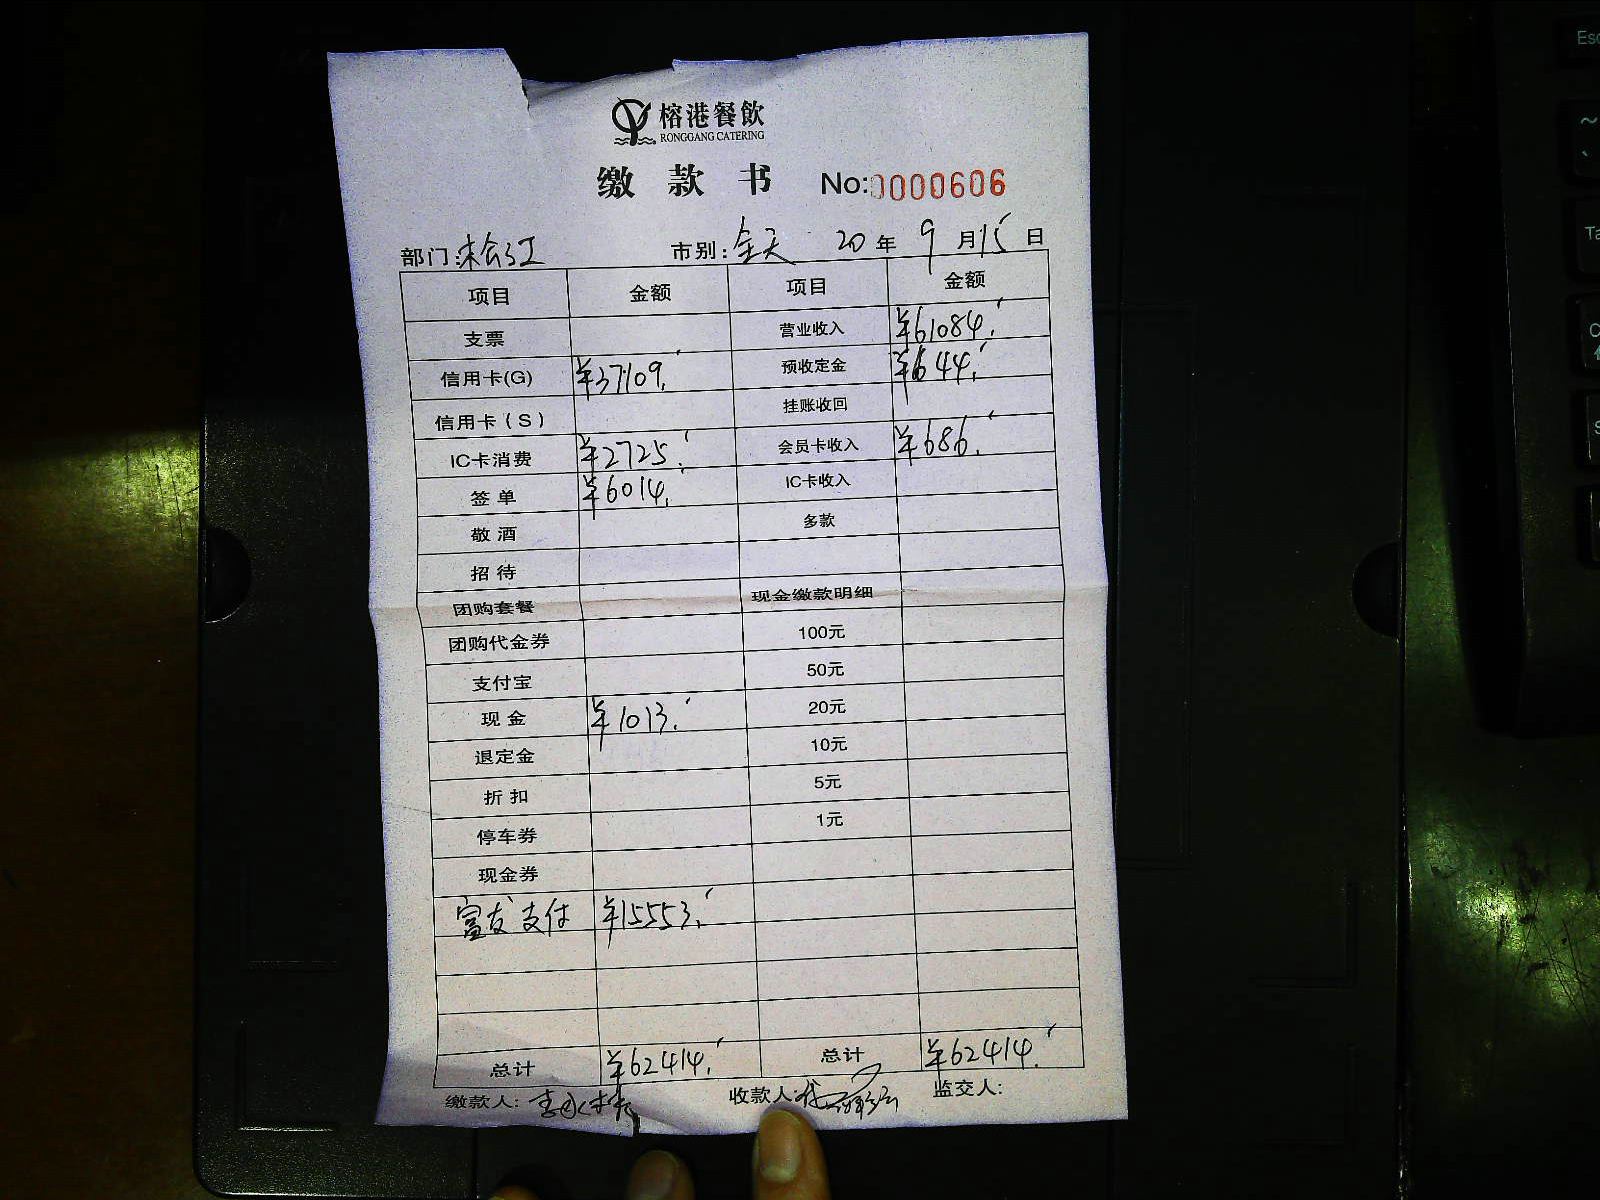 榕港餐飲
RONGGANG CATERING
缴款书 No:0000606
部门: 市别:全天 20年9月15日
项目 金额 项目 金额
支票 营业收入 ¥61084.
信用卡(G) ¥37109. 预收定金 ¥644.
信用卡(S) 挂账收回
IC卡消费 ¥2725. 会员卡收入 ¥686.
签单 ¥6014. IC卡收入
敬酒 多款
招待
团购套餐 现金缴款明细
团购代金券 100元
支付宝 50元
现金 ¥1013. 20元
退定金 10元
折扣 5元
停车券 1元
现金券
富友支付 ¥15553.
总计 ¥62414. 总计 ¥62414.
缴款人: 收款人: 监交人:
Esc
~